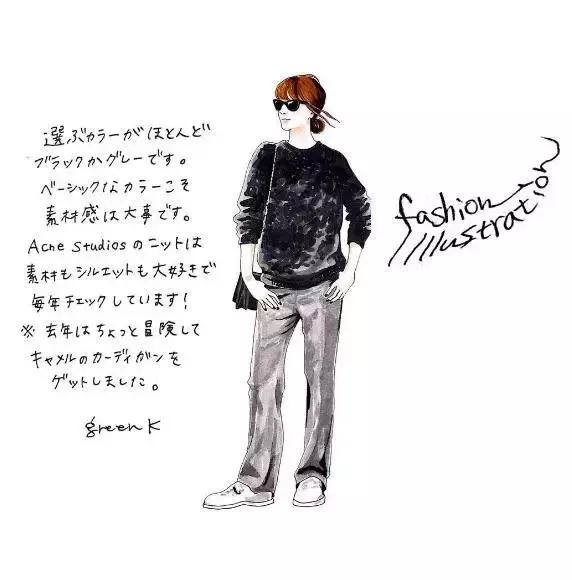 選ぶカラーがほとんど
ブラックかグレーです。
ベーシックなカラーこそ
素材感は大事です。
Acne Studiosのニットは
素材もシルエットも大好きで
毎年チェックしています!
※去年はちょっと冒険して
キャメルのカーディガンを
ゲットしました。
green K
fashion
illustration